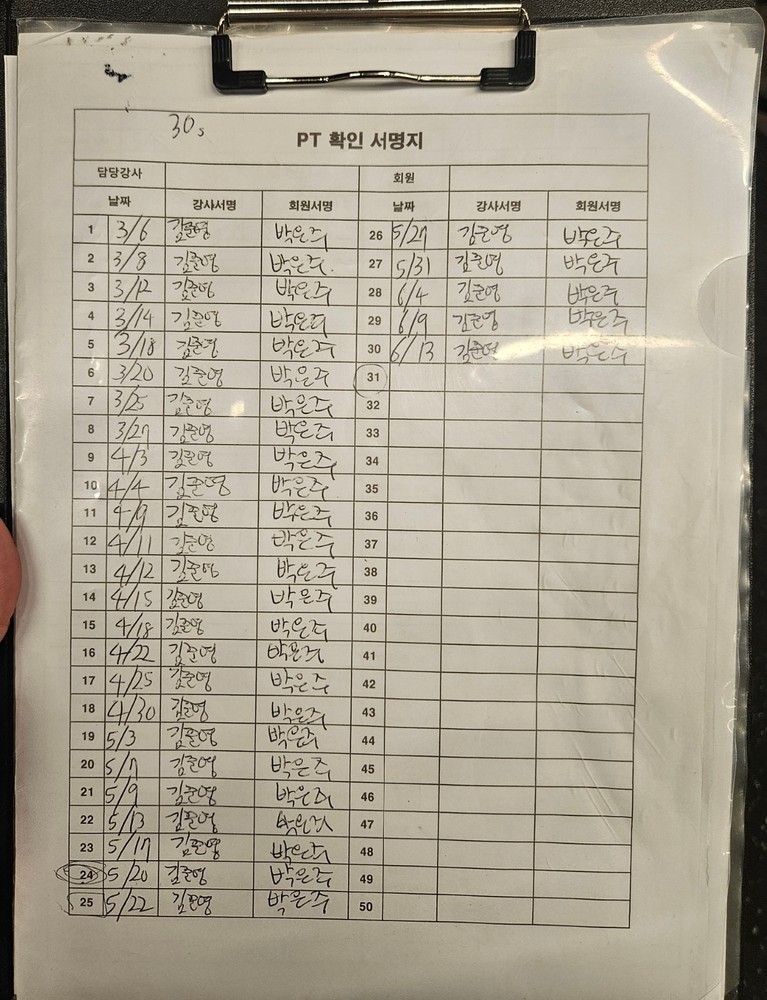 30s
PT 확인 서명지
담당강사 회원
날짜 강사서명 회원서명 날짜 강사서명 회원서명
1 3/6 김준영 박은주 26 5/27 김준영 박은주
2 3/8 김준영 박은주 27 5/31 김준영 박은주
3 3/12 김준영 박은주 28 6/4 김준영 박은주
4 3/14 김준영 박은주 29 6/9 김준영 박은주
5 3/18 김준영 박은주 30 6/13 김준영 박은주
6 3/20 김준영 박은주 31
7 3/25 김준영 박은주 32
8 3/27 김준영 박은주 33
9 4/3 김준영 박은주 34
10 4/4 김준영 박은주 35
11 4/9 김준영 박은주 36
12 4/11 김준영 박은주 37
13 4/12 김준영 박은주 38
14 4/15 김준영 박은주 39
15 4/18 김준영 박은주 40
16 4/22 김준영 박은주 41
17 4/25 김준영 박은주 42
18 4/30 김준영 박은주 43
19 5/3 김준영 박은주 44
20 5/7 김준영 박은주 45
21 5/9 김준영 박은주 46
22 5/13 김준영 박은주 47
23 5/17 김준영 박은주 48
24 5/20 김준영 박은주 49
25 5/22 김준영 박은주 50